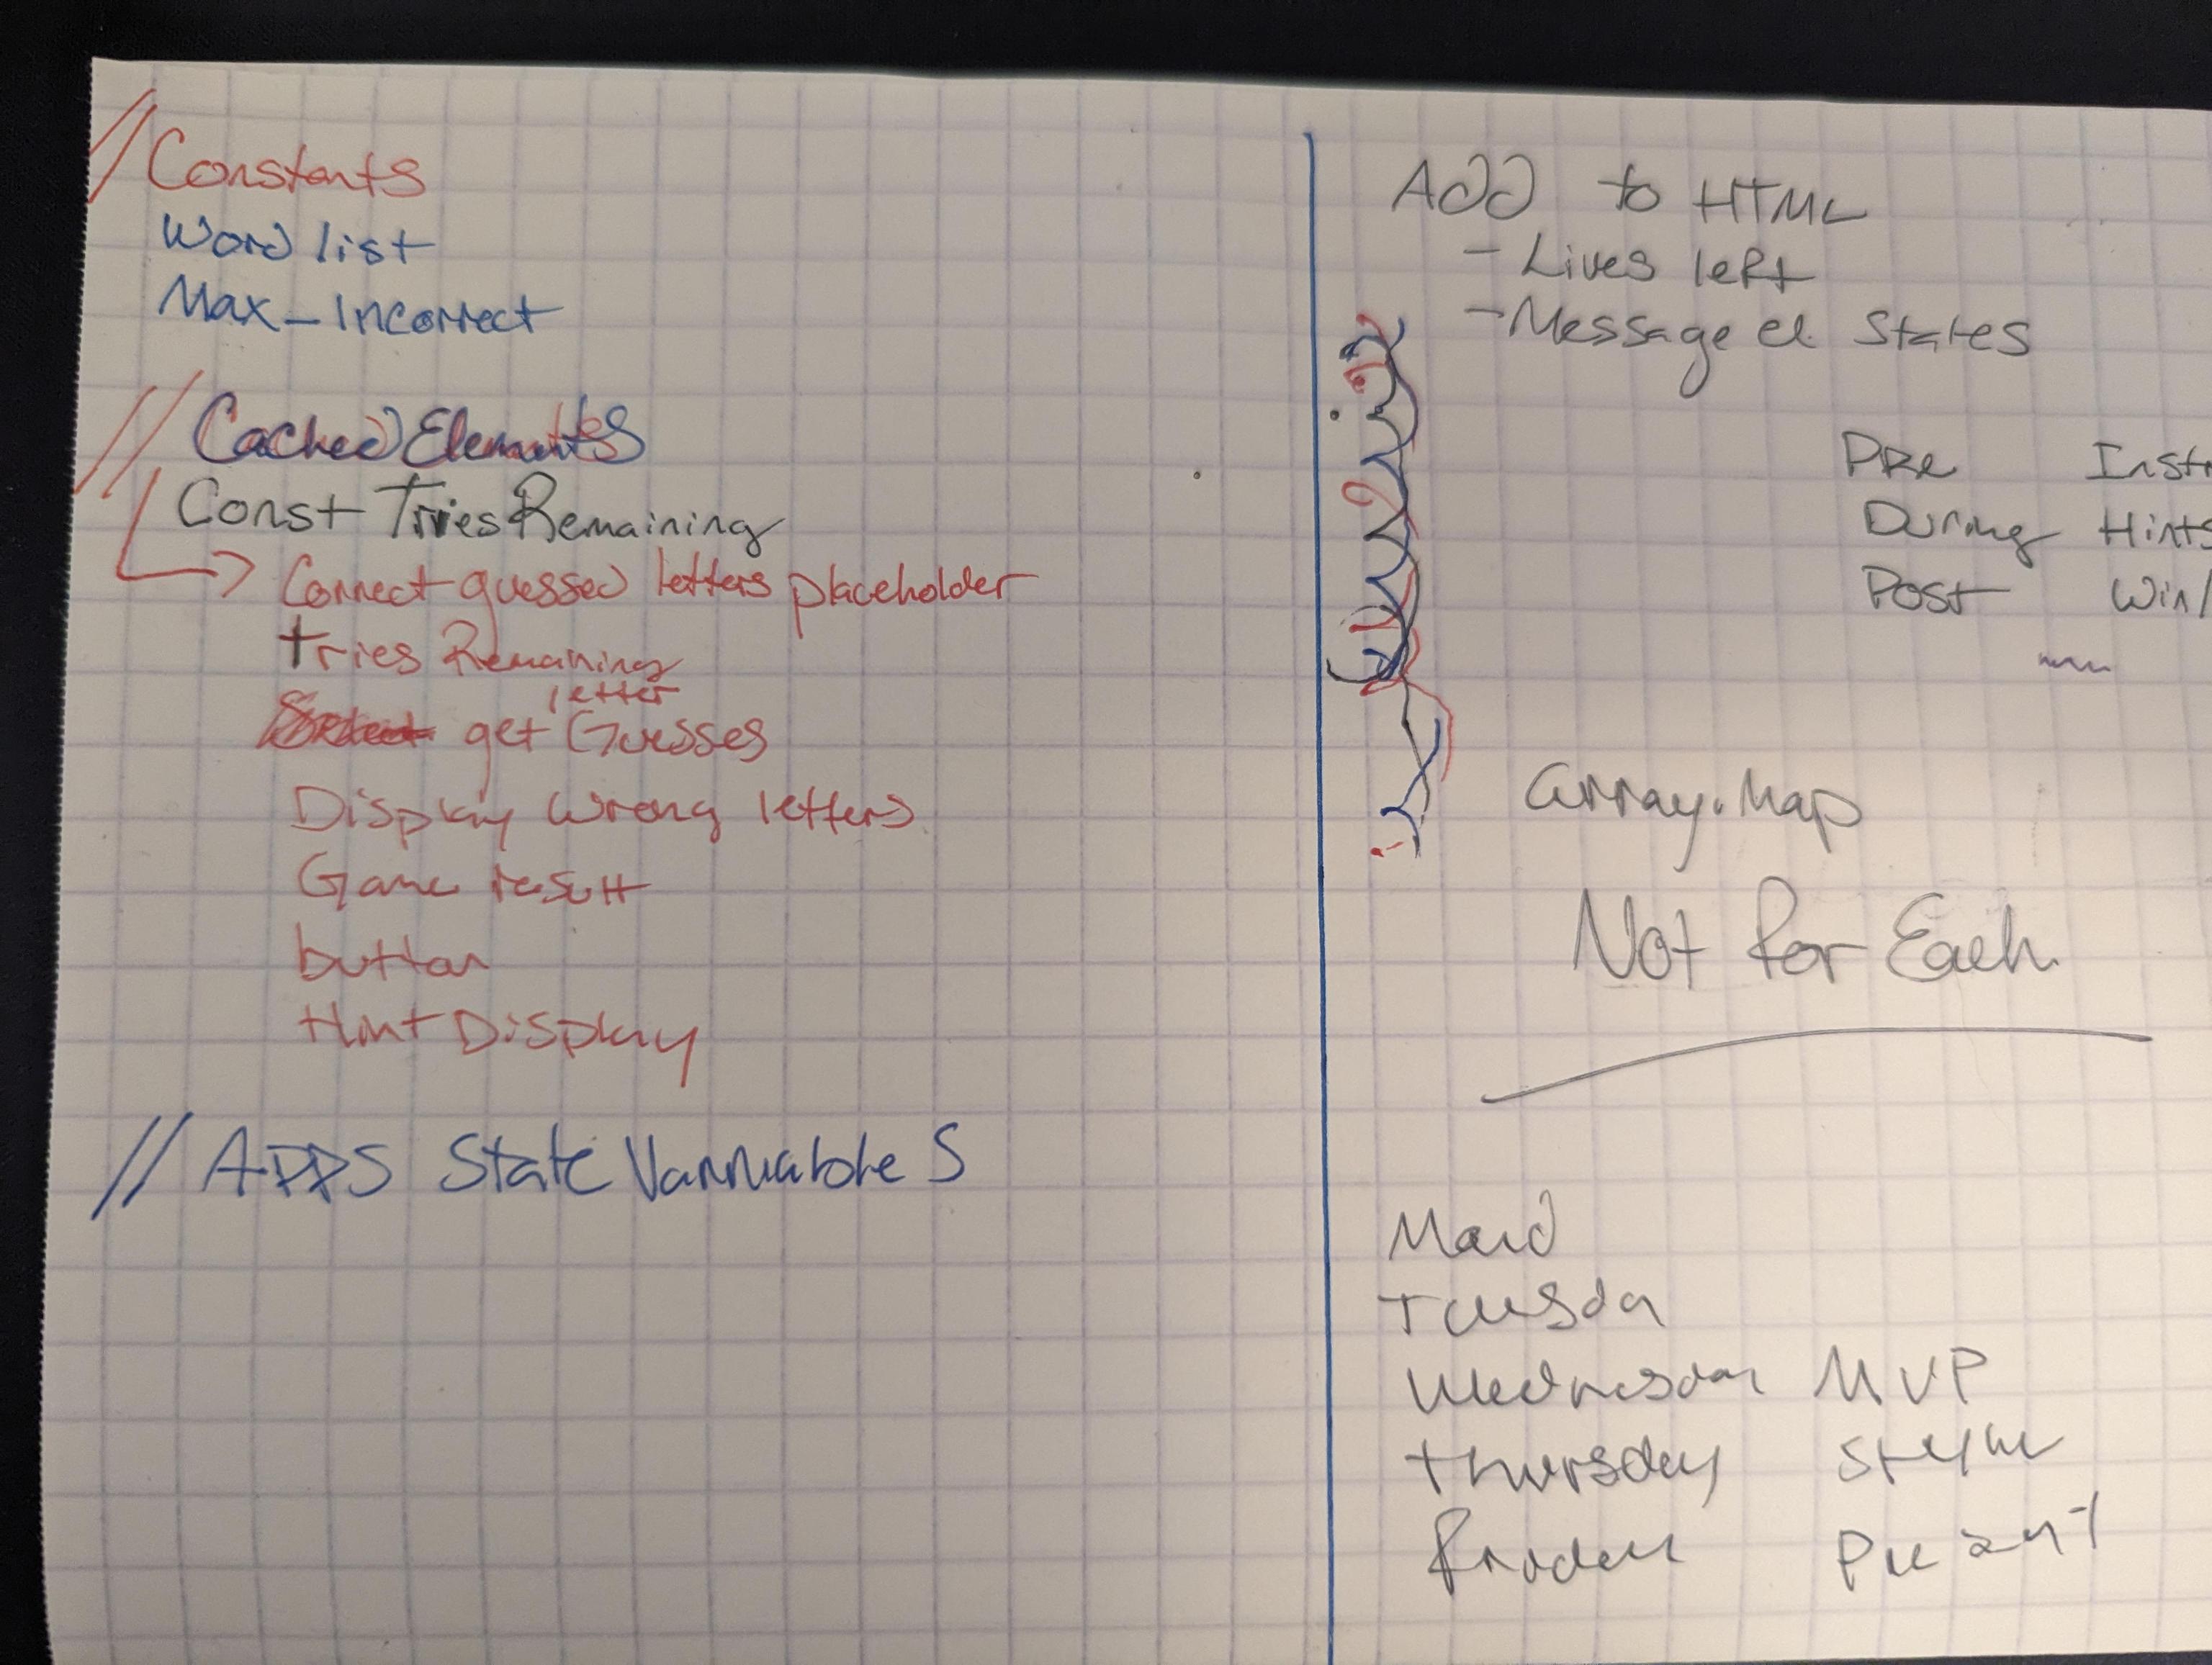 // Constants
Word list
Max_Incorrect
// Cached Elements
Const Tries Remaining
Correct guessed letters placeholder
Tries Remaining
letter
get Guesses
Display Wrong letters
Game result
button
Hint Display
// APPS State Varriable S
Add to HTML
- Lives left
- Message el States
Pre Instr
During Hints
Post Win/
array.map
Not for Each
Tuesda
Wednesday MVP
Thursday